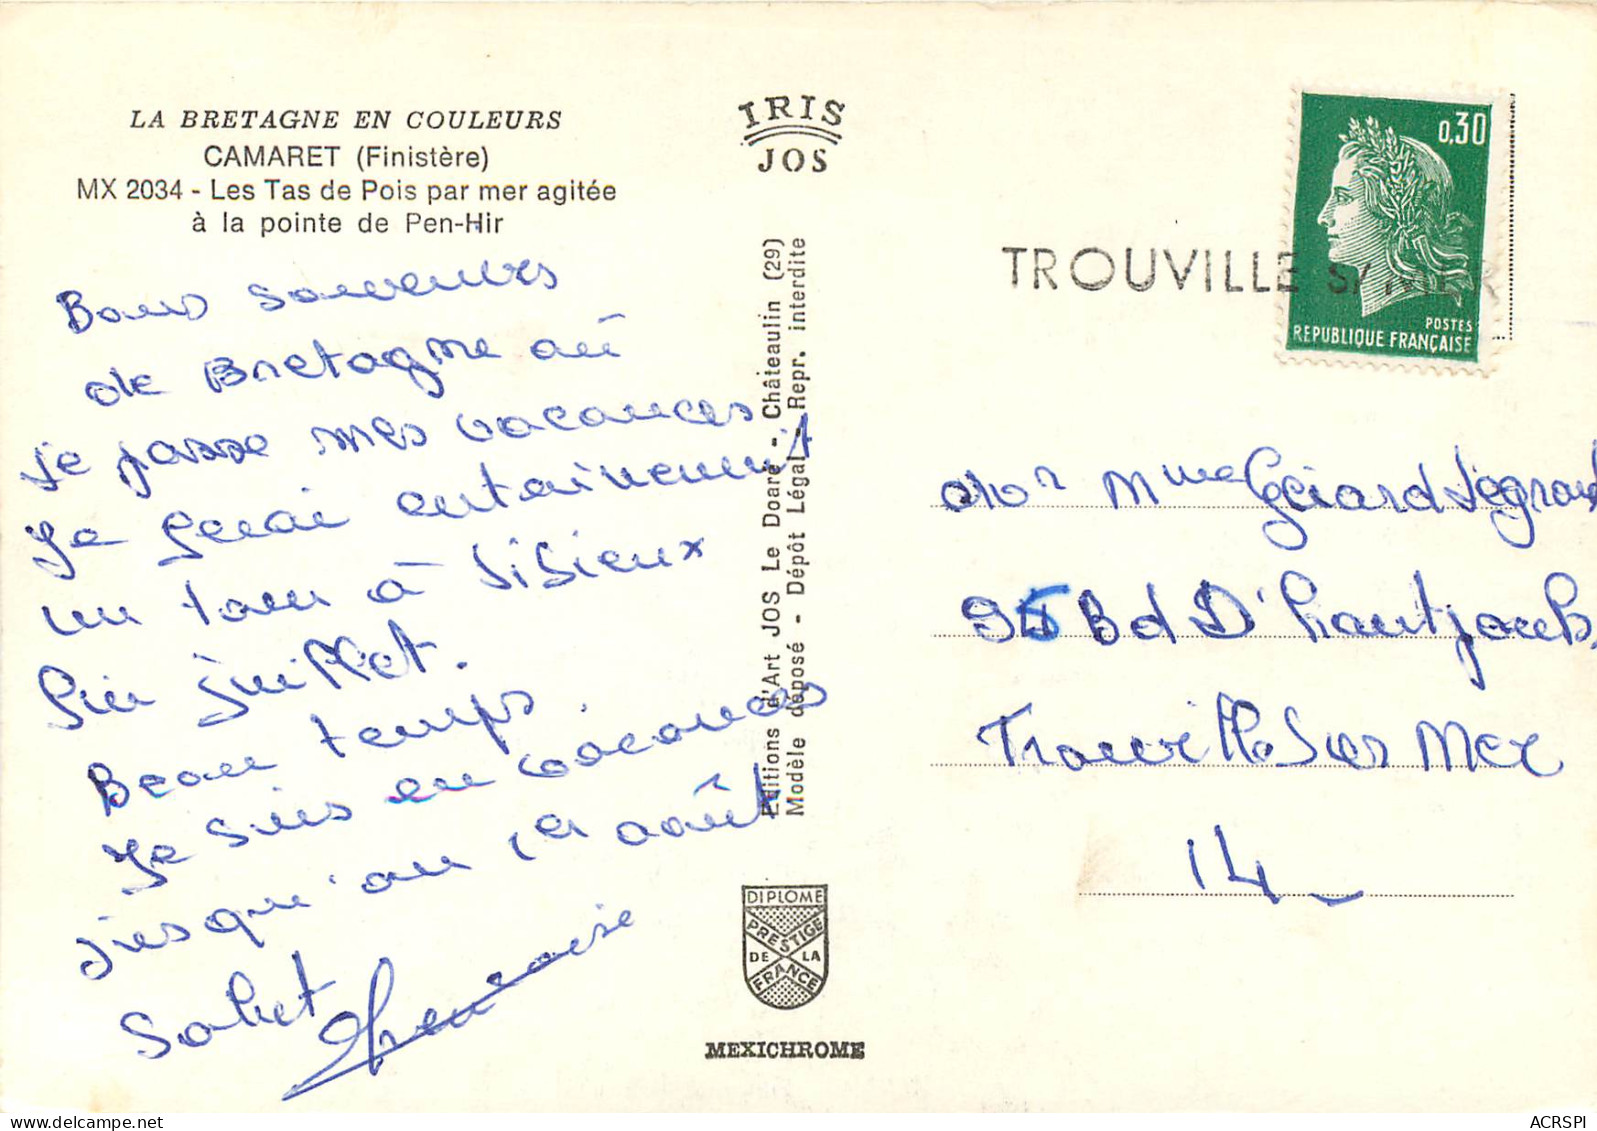 LA BRETAGNE EN COULEURS
CAMARET (Finistère)
MX 2034 - Les Tas de Pois par mer agitée
à la pointe de Pen-Hir
Bons souvenirs
de Bretagne où
je passe mes vacances
Je ferai certainement
un tour à Lisieux
fin Juillet.
Beau temps.
Je suis en vacances
jusqu'au 1er août
Salut
IRIS
JOS
Editions d'Art JOS Le Doaré - Châteaulin (29)
Modèle déposé - Dépôt Légal - Repr. interdite
DIPLOME
PRESTIGE
DE LA
FRANCE
MEXICHROME
0,30
POSTES
REPUBLIQUE FRANÇAISE
TROUVILLE S/ MER
Mor Mme Gérard Legrand
Bd D'hautpoul
Trouville Sur Mer
14
ACRSPI